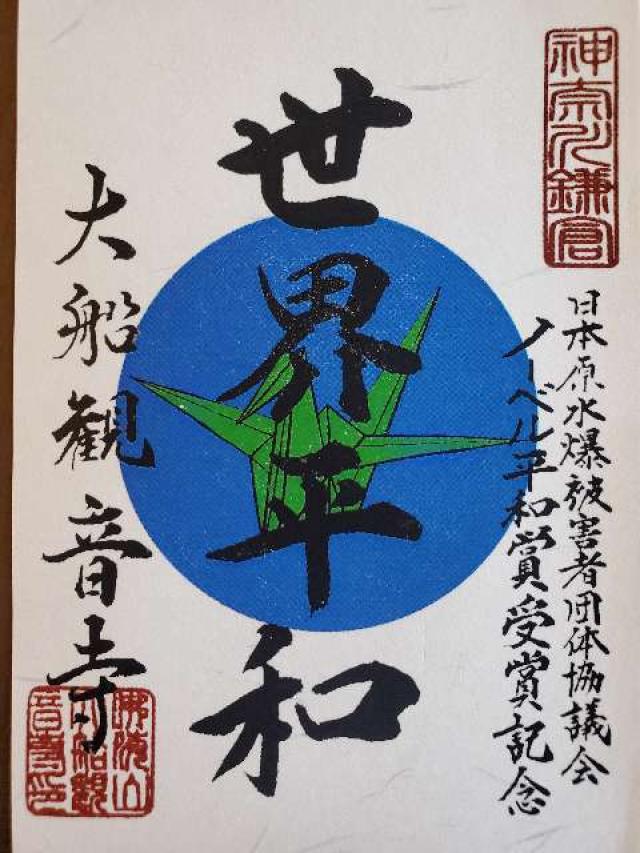 神奈川鎌倉
日本原水爆被害者団体協議会
ノーベル平和賞受賞記念
世界平和
大船観音寺
佛海山
大船観
音寺印